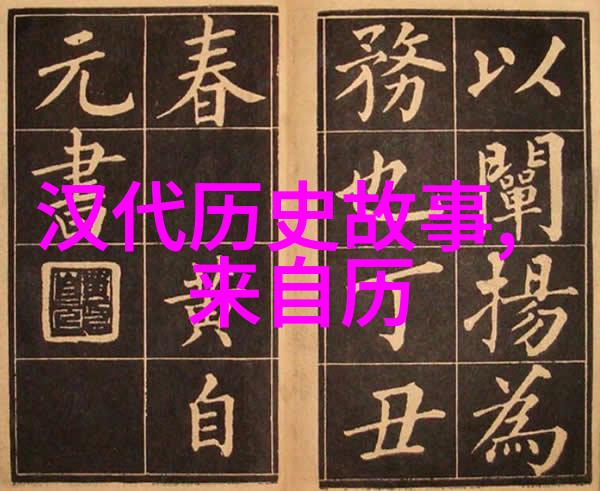 汉代历史故事,
来自历
以闡揚為
務也丁丑
春黄自
元書